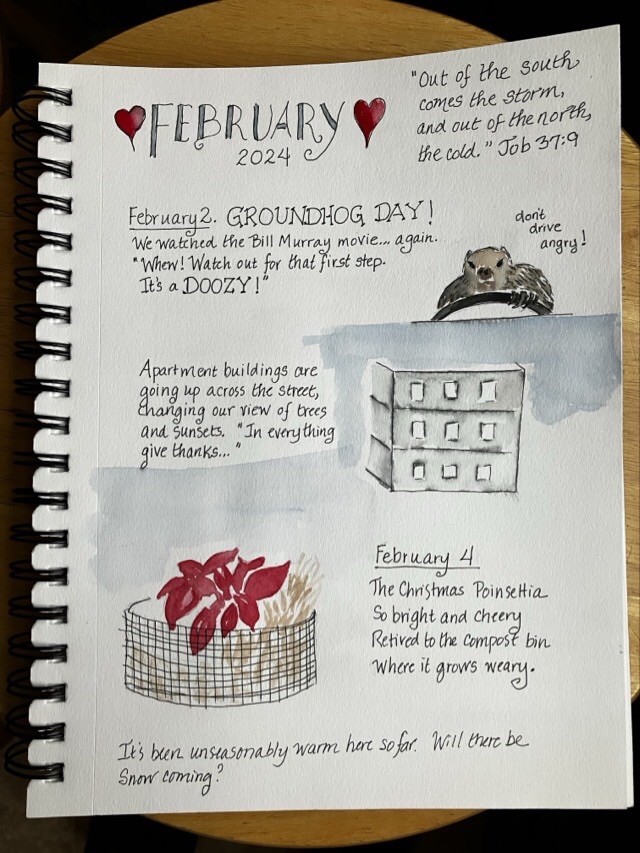 FEBRUARY
2024
"Out of the south
comes the storm,
and out of the north,
the cold." Job 37:9
February 2. GROUNDHOG DAY!
We watched the Bill Murray movie... again.
"Whew! Watch out for that first step.
It's a DOOZY!"
don't
drive
angry!
Apartment buildings are
going up across the street,
changing our view of trees
and sunsets. "In everything
give thanks..."
February 4
The Christmas Poinsettia
So bright and cheery
Retired to the compost bin
Where it grows weary.
It's been unseasonably warm here so far. Will there be
Snow coming?